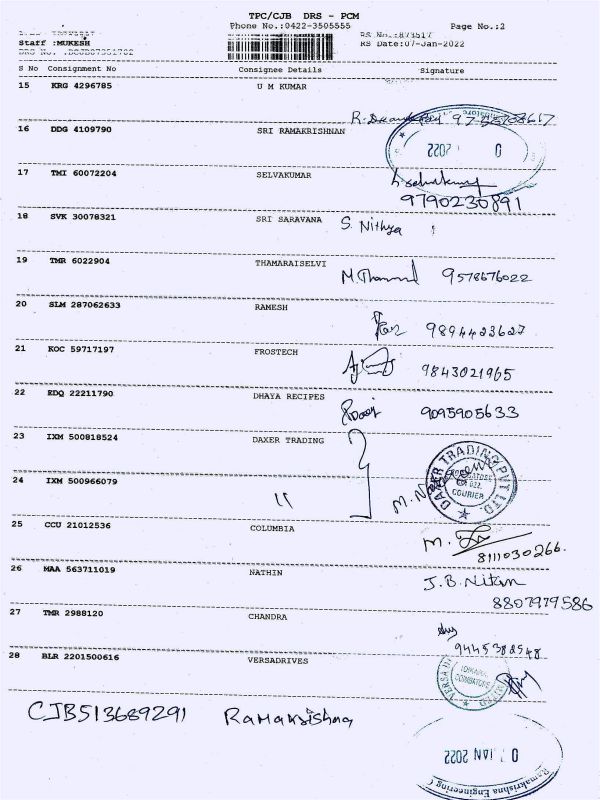 TPC/CJB DRS - PCM
Phone No.:0422-3505555 Page No.:2
Staff :MUKESH RS Date:07-Jan-2022
S No Consignment No Consignee Details Signature
15 KRG 4296785 U M KUMAR
16 DDG 4109790 SRI RAMAKRISHNAN
2022
17 TMI 60072204 SELVAKUMAR
9790230891
18 SVK 30078321 SRI SARAVANA S. Nithya
19 TMR 6022904 THAMARAISELVI
9578676022
20 SLM 287062633 RAMESH
9894423627
21 KOC 59717197 FROSTECH
9843021965
22 EDQ 22211790 DHAYA RECIPES
9095905633
23 IXM 500818524 DAXER TRADING
DAXER TRADING PVT LTD.
COURIER
24 IXM 500966079 "
25 CCU 21012536 COLUMBIA
8111030266.
26 MAA 563711019 NATHIN J.B. Nitin
8807979586
27 TMR 2988120 CHANDRA
28 BLR 2201500616 VERSADRIVES
COIMBATORE
CJB513689291 Ramakrishna
JAN 2022
Ramakrishna Engineering